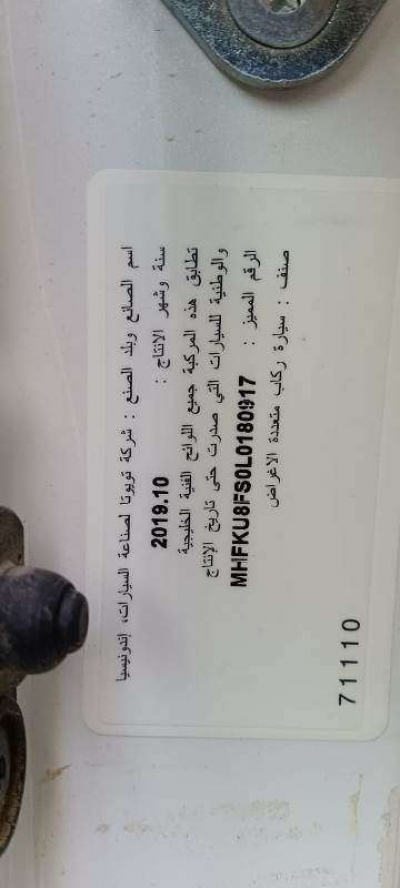 اسم الصانع وبلد الصنع : شركة تويوتا لصناعة السيارات، إندونيسيا
سنة وشهر الانتاج : 2019.10
تطابق هذه المركبة جميع اللوائح الفنية الخليجية
والوطنية للسيارات التي صدرت حتى تاريخ الإنتاج
الرقم المميز : MHFKU8FS0L0180917
صنف : سيارة ركاب متعددة الاغراض
71110